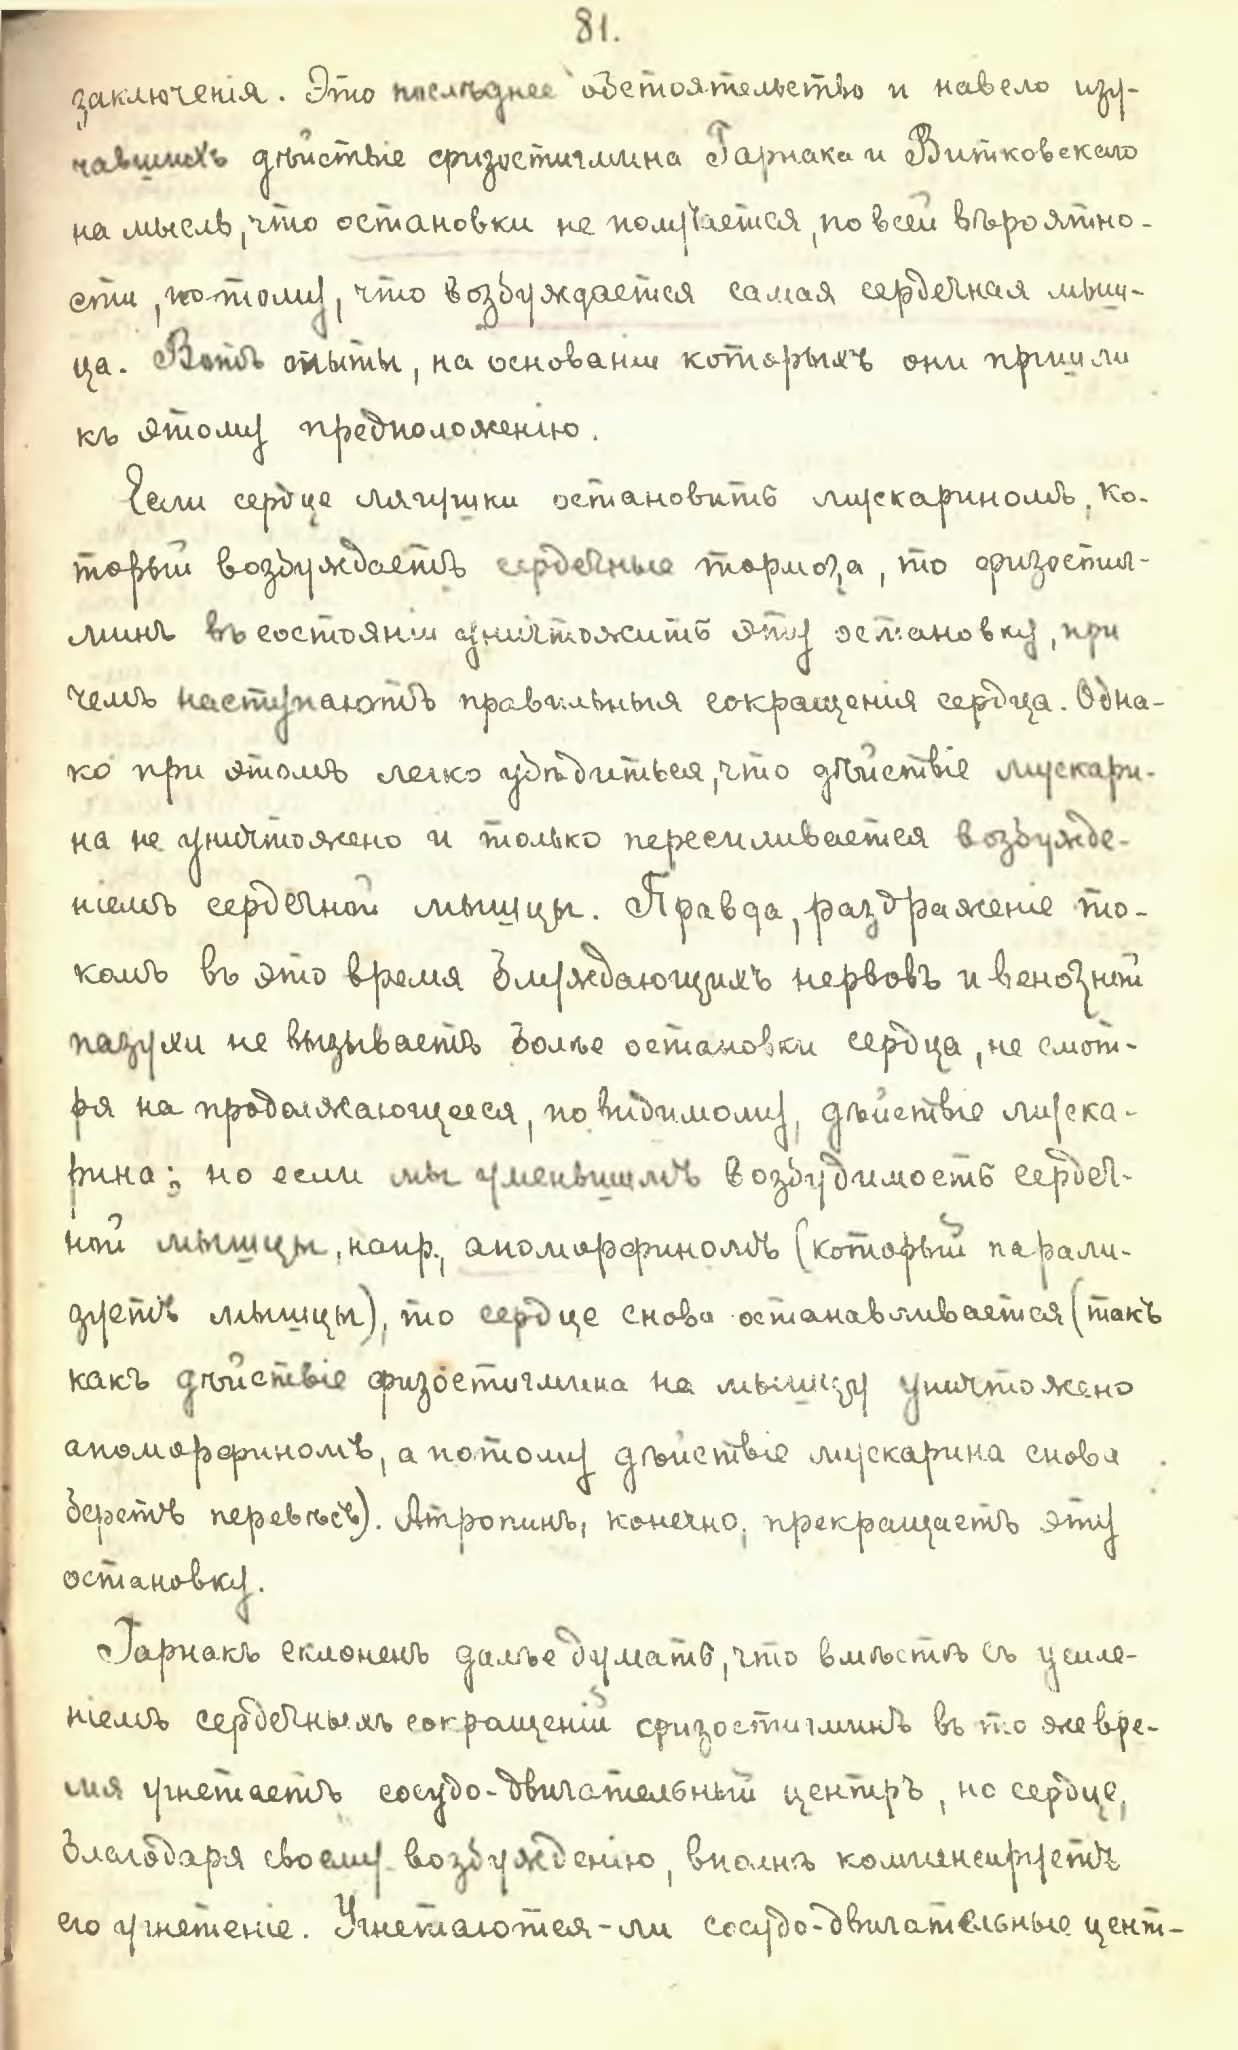 81.
заключенія. Это послѣднее обстоятельство и навело изу-
чавшихъ дѣйствіе физостигмина Гарнака и Витковскаго
на мысль, что остановки не получается, по всей вѣроятно-
сти, потому, что возбуждается самая сердечная мыш-
ца. Вотъ опыты, на основаніи которыхъ они пришли
къ этому предположенію.
Если сердце лягушки остановить мускариномъ, ко-
торый возбуждаетъ сердечные тормоза, то физостиг-
минъ въ состояніи уничтожить эту остановку, при
чемъ наступаютъ правильныя сокращенія сердца. Одна-
ко при этомъ легко убѣдиться, что дѣйствіе мускари-
на не уничтожено и только пересиливается возбужде-
ніемъ сердечной мышцы. Правда, раздраженіе то-
комъ въ это время блуждающихъ нервовъ и венозной
пазухи не вызываетъ болѣе остановки сердца, не смот-
ря на продолжающееся, повидимому, дѣйствіе муска-
рина; но если мы уменьшимъ возбудимость сердеч-
ной мышцы, напр., апоморфиномъ (который парали-
зуетъ мышцы), то сердце снова останавливается (такъ
какъ дѣйствіе физостигмина на мышцу уничтожено
апоморфиномъ, а потому дѣйствіе мускарина снова
беретъ перевѣсъ). Атропинъ, конечно, прекращаетъ эту
остановку.
Гарнакъ склоненъ далѣе думать, что вмѣстѣ съ усиле-
ніемъ сердечныхъ сокращеній физостигминъ въ то же вре-
мя угнетаетъ сосудо-двигательный центръ, но сердце,
благодаря своему возбужденію, вполнѣ компенсируетъ
его угнетеніе. Угнетаются-ли сосудо-двигательные цент-